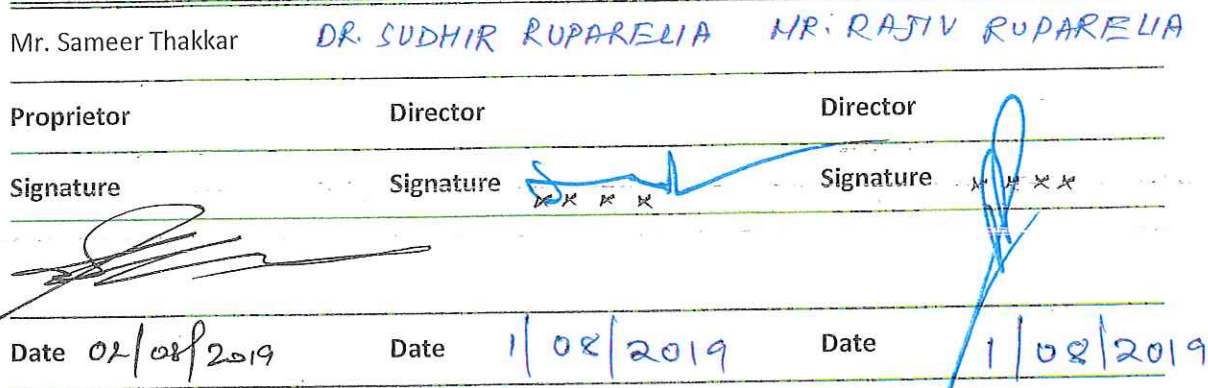 Mr. Sameer Thakkar DR. SUDHIR RUPARELIA MR. RAJIV RUPARELIA
Proprietor Director Director
Signature Signature Signature
x x x x x x x x
Date 02/08/2019 Date 1/08/2019 Date 1/08/2019